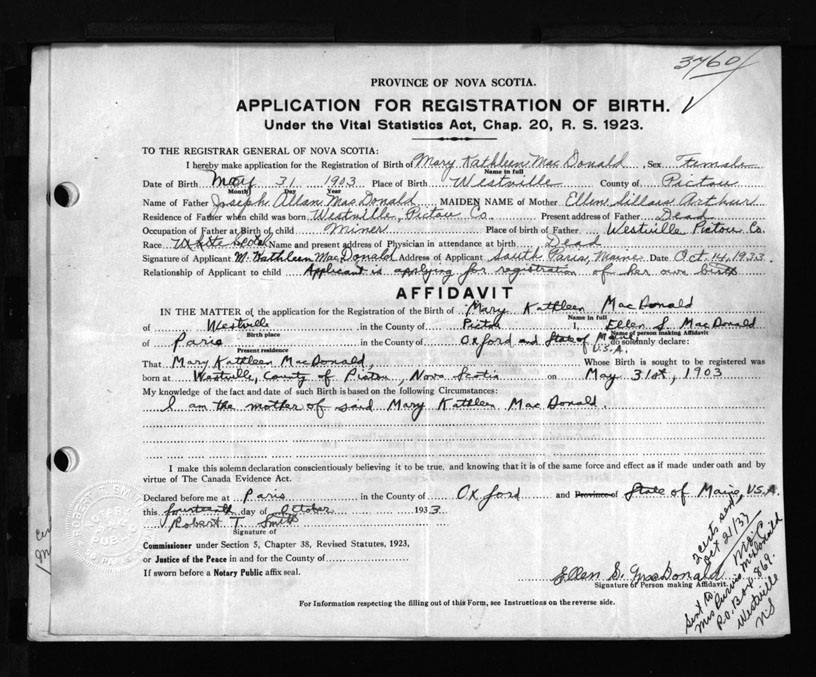 3760
PROVINCE OF NOVA SCOTIA.
APPLICATION FOR REGISTRATION OF BIRTH.
Under the Vital Statistics Act, Chap. 20, R. S. 1923.
TO THE REGISTRAR GENERAL OF NOVA SCOTIA:
I hereby make application for the Registration of Birth of Mary Kathleen MacDonald Sex Female
Name in full
Date of Birth May 31 1903 Place of Birth Westville County of Pictou
Month Day Year
Name of Father Joseph Allan MacDonald MAIDEN NAME of Mother Ellen Arthur
Residence of Father when child was born Westville, Pictou Co. Present address of Father Dead
Occupation of Father at Birth of child Miner Place of birth of Father Westville Pictou Co.
Race White Scotch Name and present address of Physician in attendance at birth Dead
Signature of Applicant M. Kathleen MacDonald Address of Applicant South Paris, Maine Date Oct. 14, 1933.
Relationship of Applicant to child Applicant is applying for registration of her own birth
AFFIDAVIT
IN THE MATTER of the application for the Registration of Birth of Mary Kathleen MacDonald
Name in full
of Westville in the County of Pictou I, Ellen S. MacDonald
Birth place Name of person making Affidavit
of Paris in the County of Oxford and State of Maine U.S.A. do solemnly declare:
Present residence
That Mary Kathleen MacDonald, Whose Birth is sought to be registered was
born at Westville, County of Pictou, Nova Scotia on May 31st, 1903
My knowledge of the fact and date of such Birth is based on the following Circumstances:
I am the mother of said Mary Kathleen MacDonald.
I make this solemn declaration conscientiously believing it to be true, and knowing that it is of the same force and effect as if made under oath and by
virtue of The Canada Evidence Act.
Declared before me at Paris in the County of Oxford and Province of State of Maine, U.S.A.
this fourteenth day of October 1933
Robert T. Smith
Signature of
Commissioner under Section 5, Chapter 38, Revised Statutes, 1923,
or Justice of the Peace in and for the County of
If sworn before a Notary Public affix seal.
Ellen S. MacDonald
Signature of Person making Affidavit.
For Information respecting the filling out of this Form, see Instructions on the reverse side.
2 certs sent
Oct 21/33
Sent to
Mrs McDonald
P.O. Box 869.
Westville
NS